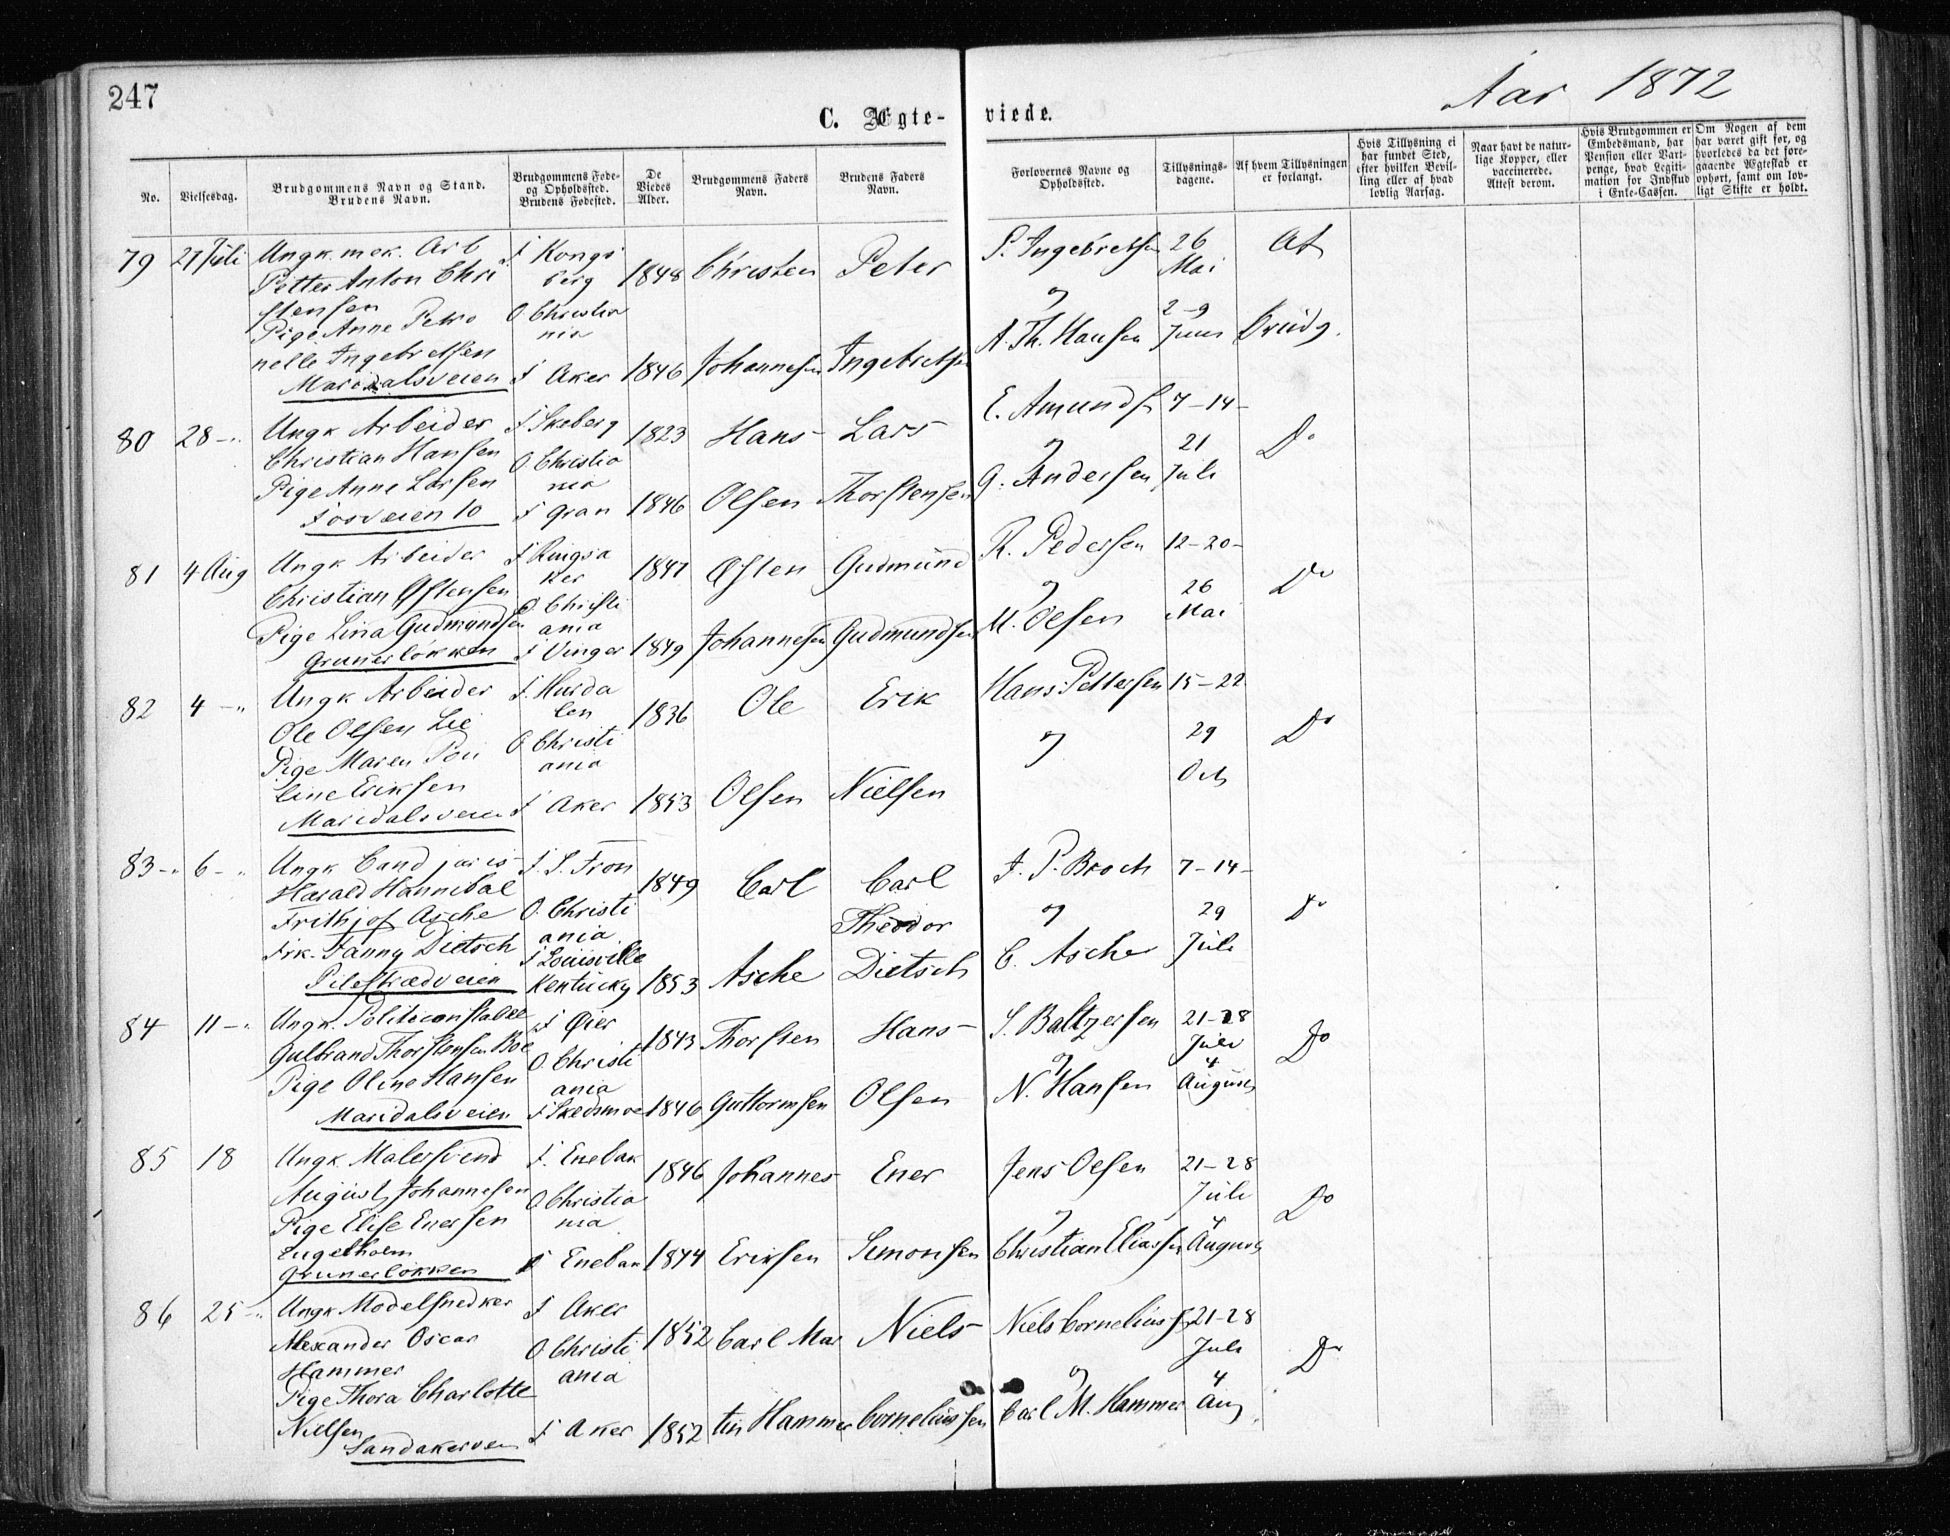 247
Aar 1872
C. Ægte-
viede.
No.
Vielsesdag.
Brudgommens Navn og Stand.
Brudens Navn.
Brudgommens Føde-
og Opholdssted.
Brudens Fødested.
De
Viedes
Alder.
Brudgommens Faders
Navn.
Brudens Faders
Navn.
Forlovernes Navne og
Opholdssted.
Tillysnings-
dagene.
Af hvem Tillysningen
er forlangt.
Hvis Tillysning ei
har fundet Sted,
efter hvilken Bevil-
ling eller af hvad
lovlig Aarsag.
Naar havt de natur-
lige Kopper, eller
vaccinerede.
Attest derom.
Hvis Brudgommen er
Embedsmand, har
Pension eller Vart-
penge, hvad Legiti-
mation for Indskud
i Enke-Cassen.
Om Nogen af dem
har været gift før, og
hvorledes da det fore-
gaaende Ægteskab er
ophørt, samt om lov-
ligt Skifte er holdt.
79 27 Juli Ungk. mek. Arb f Kongs 1848 Christen Peter P. Ingebretsen 26 Af
Petter Anton Chri berg Mai
stensen O Christia og 2-9
Pige Anne Petro nia A. Th. Hansen Juni Brudg.
nelle Ingebretsen f Aker 1846 Johannesen Ingebretsen
Maridalsveien
80 28 -" Ungk Arbeider f Skeberg 1823 Hans Lars E. Amunds 7-14-
Christian Hansen O Christia og 21 Do
Pige Anne Larsen nia G. Andersen Juli
Fosveien 10 f Gran 1846 Olsen Thorstensen
81 4 Aug Ungk Arbeider f Ringsa 1847 Østen Gudmund R. Pedersen 12-20-
Christian Østensen ker og 26 Do
Pige Lina Gudmundsen O Christi M. Olsen Mai
ania
Grunerløkken f Vinger 1849 Johannesen Gudmundsen
82 4 -" Ungk Arbeider f. Hurda 1836 Ole Erik Hans Pettersen 15-22
Ole Olsen Lie len og 29 Do
Pige Maren Pou O Christi Oct
line Eriksen ania
Maridalsveien f Aker 1853 Olsen Nielsen
83 -" 6 -" Ungk Cand juris f. S. Fron 1849 Carl Carl F. P. Broch 7-14-
Harald Hannibal Theodor og 29 Do
Frithjof Asche O. Christi C. Asche Juli
Frk. Fanny Dietsch ania
f Louisville
Pilestrædveien Kentucky 1853 Asche Dietsch
84 11 -" Ungk. Politiconstabel f Øier 1843 Thorsten Hans S. Baltzersen 21-28
Gulbrand Thorstensen Boe O. Christi og Juli Do
Pige Oline Hansen ania N. Hansen 4 August
Maridalsveien f Skedsmoe 1846 Guttormsen Olsen
85 18 Ungk Malersvend f. Enebak 1846 Johannes Ener Jens Olsen 21-28
August Johannesen O Christia Juli Do
Pige Elise Enersen nia og 4
Engelholm Christian Eliassen August
Grunerløkken f Enebak 1844 Eriksen Simonsen
86 25 -" Ungk Modelsnedker f Aker 1852 Carl Mar Niels Niels Corneliuss 21-28
Alexander Oscar O Christi Juli Do
Hammer ania og 4
Pige Thora Charlotte Carl M. Hammer Aug
Nielsen f Aker 1852 tin Hammer Corneliussen
Sandakervei